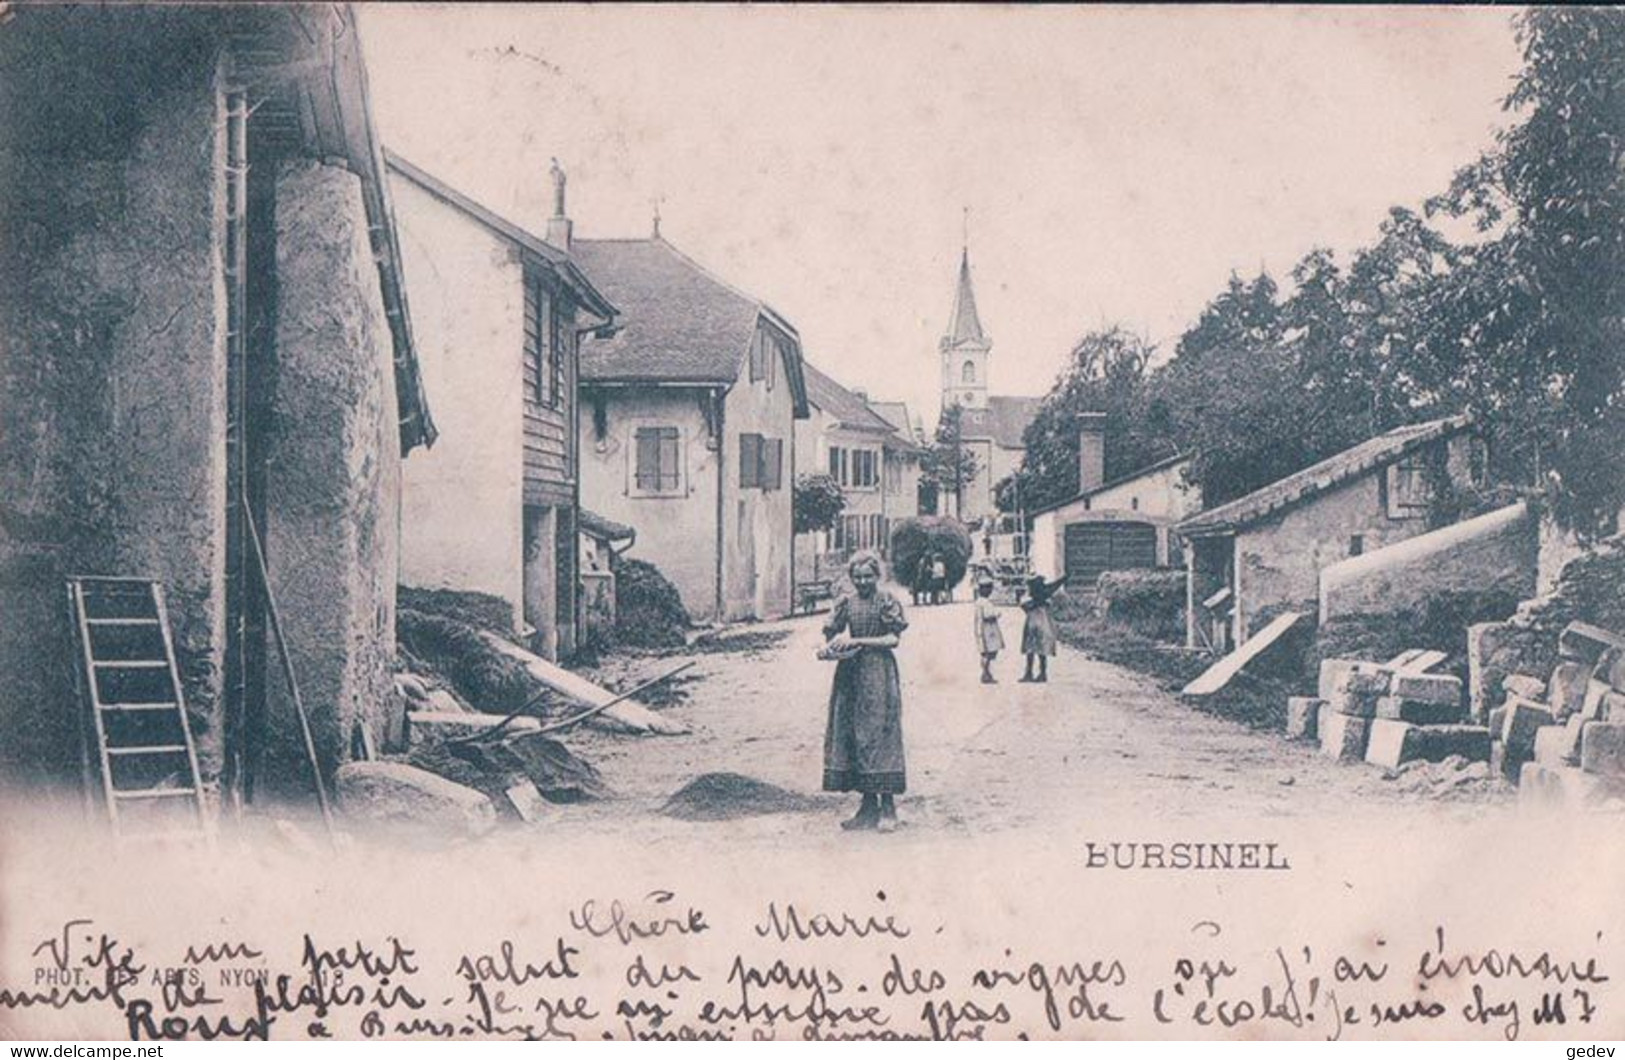 BURSINEL
Chère Marie.
PHOT. DES ARTS, NYON 118
Vite un petit salut du pays des vignes où j'ai énormé
ment de plaisir. Je ne m'ennuie pas de l'école! Je suis chez M
Roux à Bursinel jusqu'à dimanche.
https://www.delcampe.net
gedev